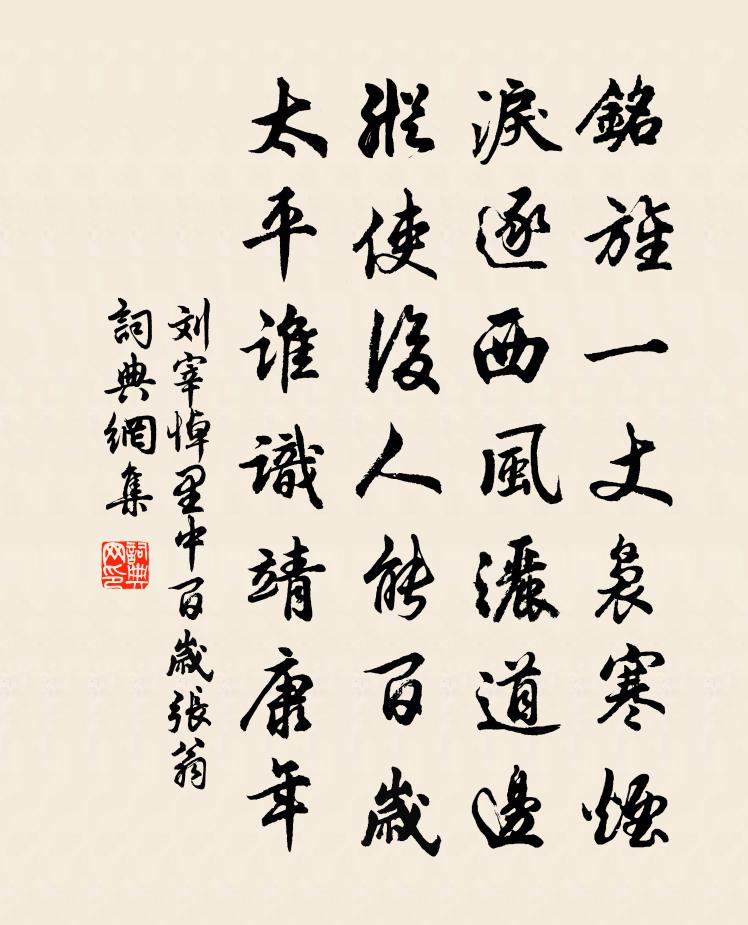 銘旌一丈裊寒煙
淚逐西風灑道邊
縱使後人能百歲
太平誰識靖康年
刘宰悼里中百歲張翁
詞典網集
詞典网印